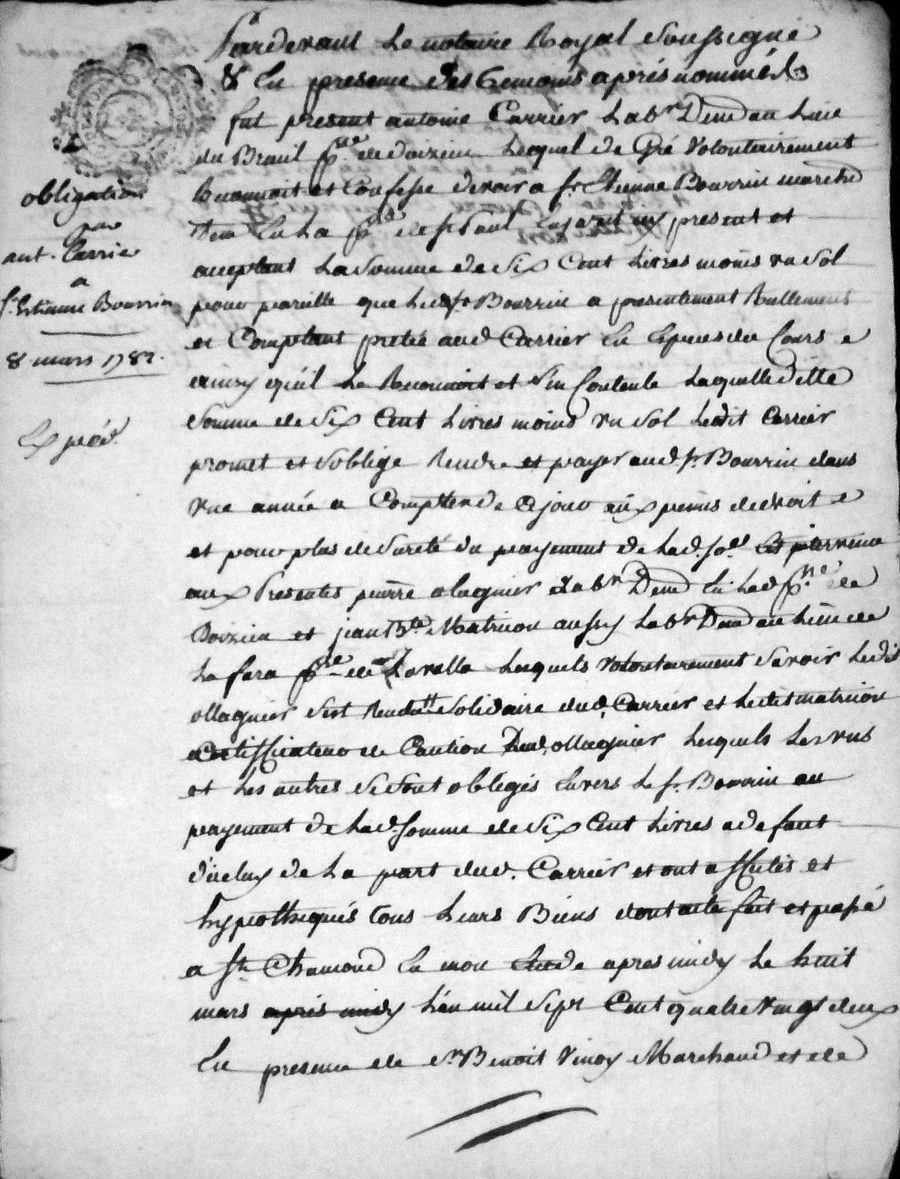 Pardevant Le notaire Royal Soussigné
& En presence des temoins aprés nommés
fut present antoine Carrier Lab.r Demt au Lieu
du Breuil p.sse de doizieu Lequel de Gré volontairement
Reconnoit et Confesse devoir a s.r Etienne Bourrin march.d
Demt En La p.sse de st paul En jarret icy present et
acceptant La somme de Six Cent Livres moins un Sol
pour pareille que Led. s.r Bourrin a presentement Reellement
et Comptant preté aud. Carrier En Especes du Cours
ainsy qu'il Le Reconnoit et s'en Contente Laquelle ditte
Somme de Six Cent Livres moins un Sol Ledit Carrier
promet et s'oblige Rendre et payer aud. s.r Bourrin dans
une année a Compter de Ce jour aux peines de droit
et pour plus de sureté du payement de Lad. so.e Est intervenu
aux Presentes pierre ollagnier Lab.r Demt En Lad. p.sse de
Doizieu et jean B.te Matricon aussy Lab.r Demt au Lieu de
La fara p.sse de Lavalla Lesquels volontairement Savoir Ledit
ollagnier s'est Rendu Solidaire dud. Carrier et Ledit matricon
Certifficateur de Caution Dud. ollagnier Lesquels Les uns
et Les autres se sont obligés Envers Le s.r Bourrin au
payement de Lad. somme de Six Cent Livres a defaut
d'iceluy de La part dud. Carrier et ont affectés et
hypothequés tous Leurs Biens dont acte fait et passé
a St Chamond En mon Etude apres midy Le huit
mars aprés midy L'an mil Sept Cent quatre vingt deux
En presence de S.r Benoit vinoy Marchand et de
obligation
par
ant. Carrier
a
s.r Etienne Bourrin
8 mars 1782.
Expéd.